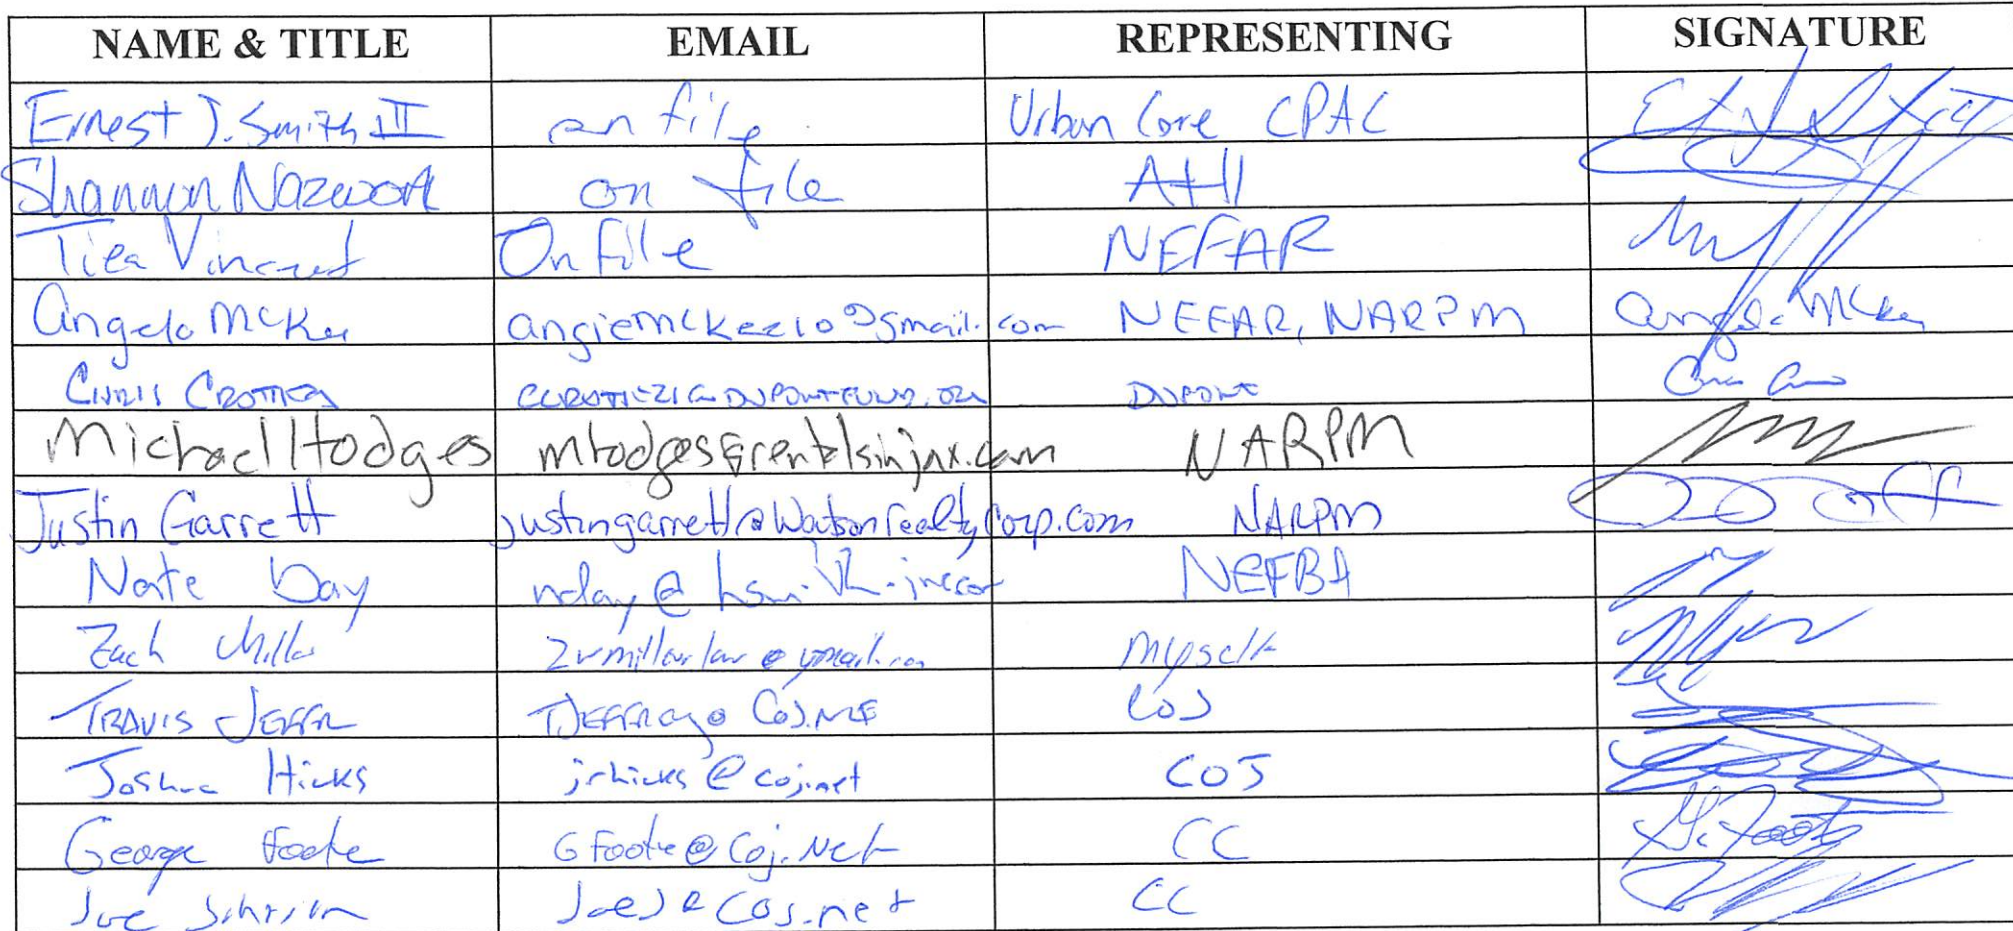 NAME & TITLE EMAIL REPRESENTING SIGNATURE
Ernest J. Smith III on file Urban Core CPAC
Shannon Nazworth on file AHI
Tiea Vincent On file NEFAR
Angela McKee angiemckee10@gmail.com NEFAR, NARPM Angela McKee
CHRIS CROTHERS DUPONT
Michael Hodges mhodges@rentalsinjax.com NARPM
Justin Garrett justingarrett@WatsonrealtyCorp.com NARPM
Nate Day NEFBA
Zach Miller zwmillerlaw@gmail.com Myself
TRAVIS JEFFR TJEFFREY@COJ.NET COJ
Joshua Hicks jrhicks@coj.net COJ
George Foote GFoote@Coj.Net CC G. Foote
Joe Johnson JoeJ@COJ.net CC